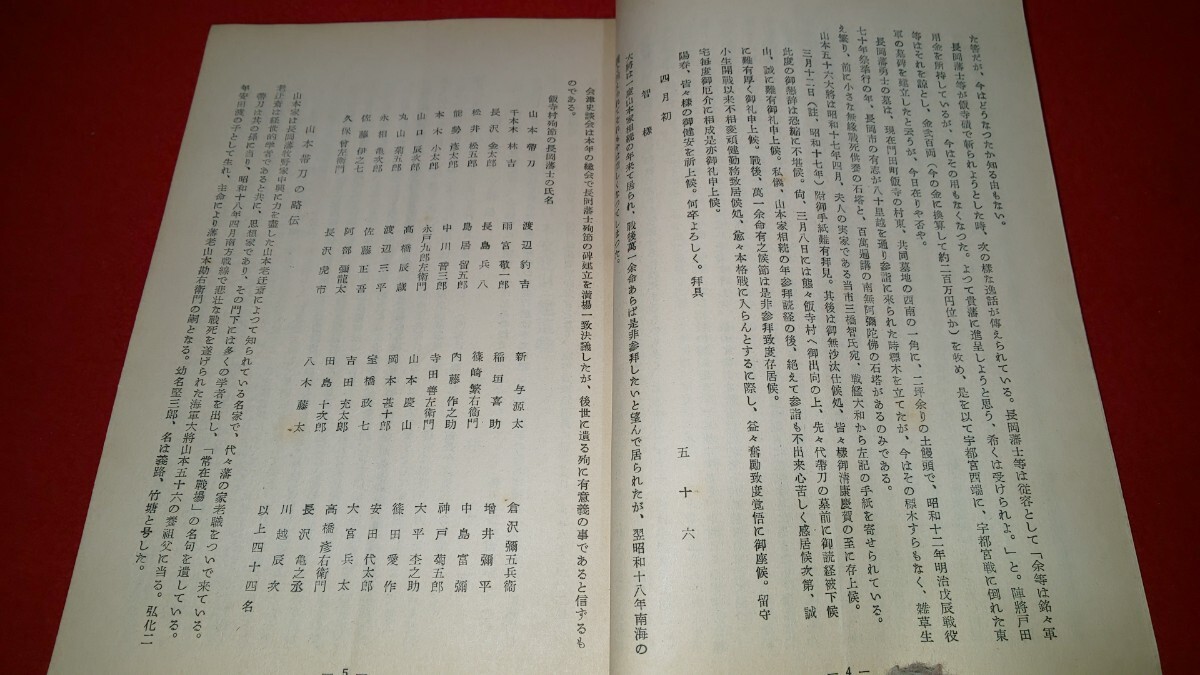 た筈だが、今はどうなつたか知る由もない。
長岡藩士等が飯寺磧で斬られようとした時、次の様な逸話が伝えられている。長岡藩士等は従容として「余等は銘々軍
用金を所持しているが、今はその用もなくなつた。よつて貴藩に進呈しようと思う、希くは受けられよ。」と。陣將戸田
等はそれを諒とし、金弐百両（今の金に換算して約二百万円位か）を收め、是を以て宇都宮西端に、宇都宮戦に倒れた東
軍の墓碑を建立したと云うが、今日在りや否や。
長岡藩勇士の墓は、現在門田町飯寺の村東、共同墓地の西南の一角に、二坪余りの土饅頭で、昭和十二年明治戊辰戦役
七十年祭挙行の年、長岡市の有志が八十里越を通り参詣に来られた時標木を立てたが、今はその標木すらもなく、雑草生
え繁り、前に小さな無縁戦死供養の石塔と、百萬遍講の南無阿彌陀佛の石塔があるのみである。
山本五十六大將は昭和十七年四月、夫人の実家である当市三橋智氏宛、戦艦大和から左記の手紙を寄せられている。
三月十二日（註、昭和十七年）附御手紙難有拝見。其後は御無沙汰仕候処、皆々様御清康慶賀の至に存上候。
此度の御懇辞は恐縮に不堪候。尙、三月八日には態々飯寺村へ御出向の上、先々代帶刀の墓前に御読経被下候
由、誠に難有御礼申上候。私儀、山本家相続の年参拝読経の後、絶えて参詣も不出来心苦しく感居候次第、誠
に難有厚く御礼申上候。戦後、萬一余命有之候節は是非参拝致度存居候。
小生開戦以来不相変頑健勤務致居候処、愈々本格戦に入らんとするに際し、益々奮勵致度覚悟に御座候。留守
宅毎度御厄介に相成是亦御礼申上候。
陽春、皆々様の御健安を祈上候。何卒よろしく。拝具
四月初
五十六
智様
大將は一度山本家相続の年来て居られ、戦後萬一余命あらば是非参拝したいと望んで居られたが、翌昭和十八年南海の
— 4 —
会津史談会は本年の総会で長岡藩士殉節の碑建立を満場一致決議したが、後世に遺る殉に有意義の事であると信ずるも
のである。
飯寺村殉節の長岡藩士の氏名
山本帶刀　渡辺豹吉　新与源太　倉沢彌五兵衞
千本木林吉　雨宮敬一郎　稲垣喜助　増井彌平
長沢金太郎　長島兵八　篠崎繁右衞門　中島富彌
松井松五郎　鳥居留五郎　内藤作之助　神戸菊五郎
能勢彦太郎　中川晋三郎　寺田善左衞門　大平杢之助
本木小太郎　永戸九郎左衞門　山本慶山　篠田愛作
山口辰次郎　高橋辰蔵　岡本甚十郎　安田代太郎
丸山菊五郎　渡辺三平　宝橋政七　大宮兵太
永相亀次郎　佐藤正吾　吉田充太郎　高橋彦右衞門
佐藤伊之七　阿部彌龍太　田島十次郎　長沢亀之丞
久保曾左衞門　長沢虎市　八木藤太　川越辰次
以上四十四名
山本帯刀の略伝
山本家は長岡藩牧野家中興に力を盡した山本老迂斎によつて知られている名家で、代々藩の家老職をついで来ている。
老迂斎は経世的學者であると共に、思想家であり、その門下には多くの学者を出し、「常在戰場」の名句を遺している。
帶刀は其の孫に当り、昭和十八年四月南方戰線で悲壮な戰死を遂げられた海軍大將山本五十六の養祖父に当る。弘化二
年安田護の子として生れ、主命により藩老山本勘右衞門の嗣となる。幼名堅三郎、名は義路、竹塘と号した。
— 5 —